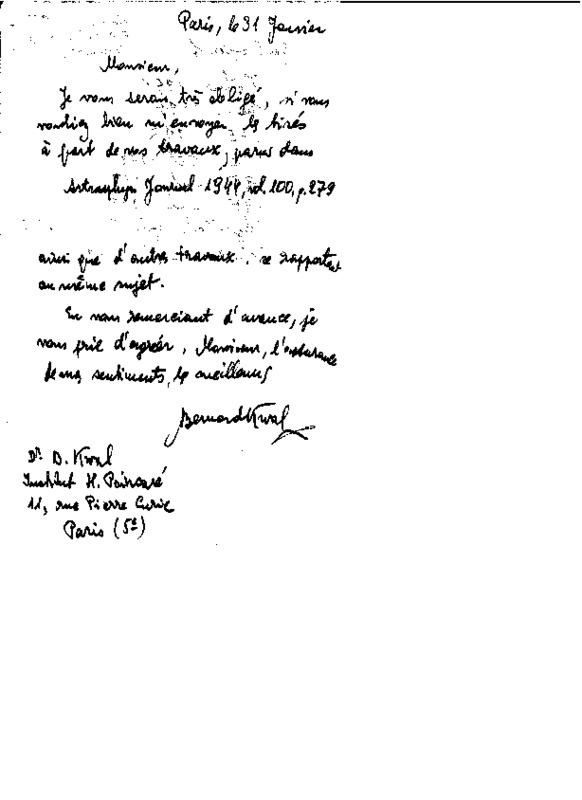 Paris, le 31 Janvier
Monsieur,
Je vous serais très obligé, si vous
vouliez bien m'envoyer les tirés
à part de vos travaux, parus dans
Astrophys. Journal 1944, vol. 100, p. 279
ainsi que d'autres travaux, se rapportant
au même sujet.
En vous remerciant d'avance, je
vous prie d'agréer, Monsieur, l'assurance
de mes sentiments, les meilleurs
Bernard Kwal
Dr. B. Kwal
Institut H. Poincaré
11, rue Pierre Curie
Paris (5e)